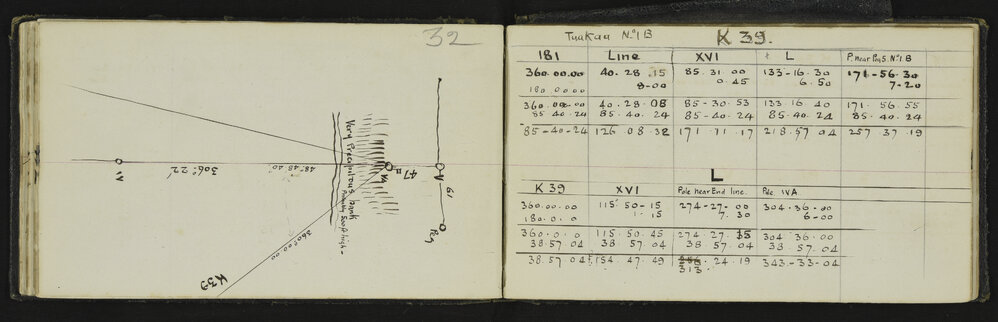 32
Very Precipitous bank
Probably 500 ft high -
IV
306.22
48°48'40"
VA
47
V
61
Peg
360.00.00
K39
Tuakau No. 1B K 39.
181 Line XVI L P. near Peg 5. No. 1.B
360.00.00 40.28.15 85.31 00 133-16.30 171-56.30
180 00 00 8-00 0 45 6.50 7-20
360.00.00 40.28.08 85-30.53 133.16 40 171.56.55
85 40.24 85.40.24 85-40.24 85-40.24 85.40.24
85-40-24 126 08 32 171 11.17 218.57 04 257 37.19
L
K 39 XVI Pole near End line. Pole IVA
360.00.00 115 50-15 274-27-00 304.36-00
180.0.0 1.15 7.30 6-00
360.0.0 115.50.45 274.27.15 304 36.00
38.57 04 38.57 04 38.57 04 38.57 04
38.57 04 154.47.49 24.19 343-33-04
313.